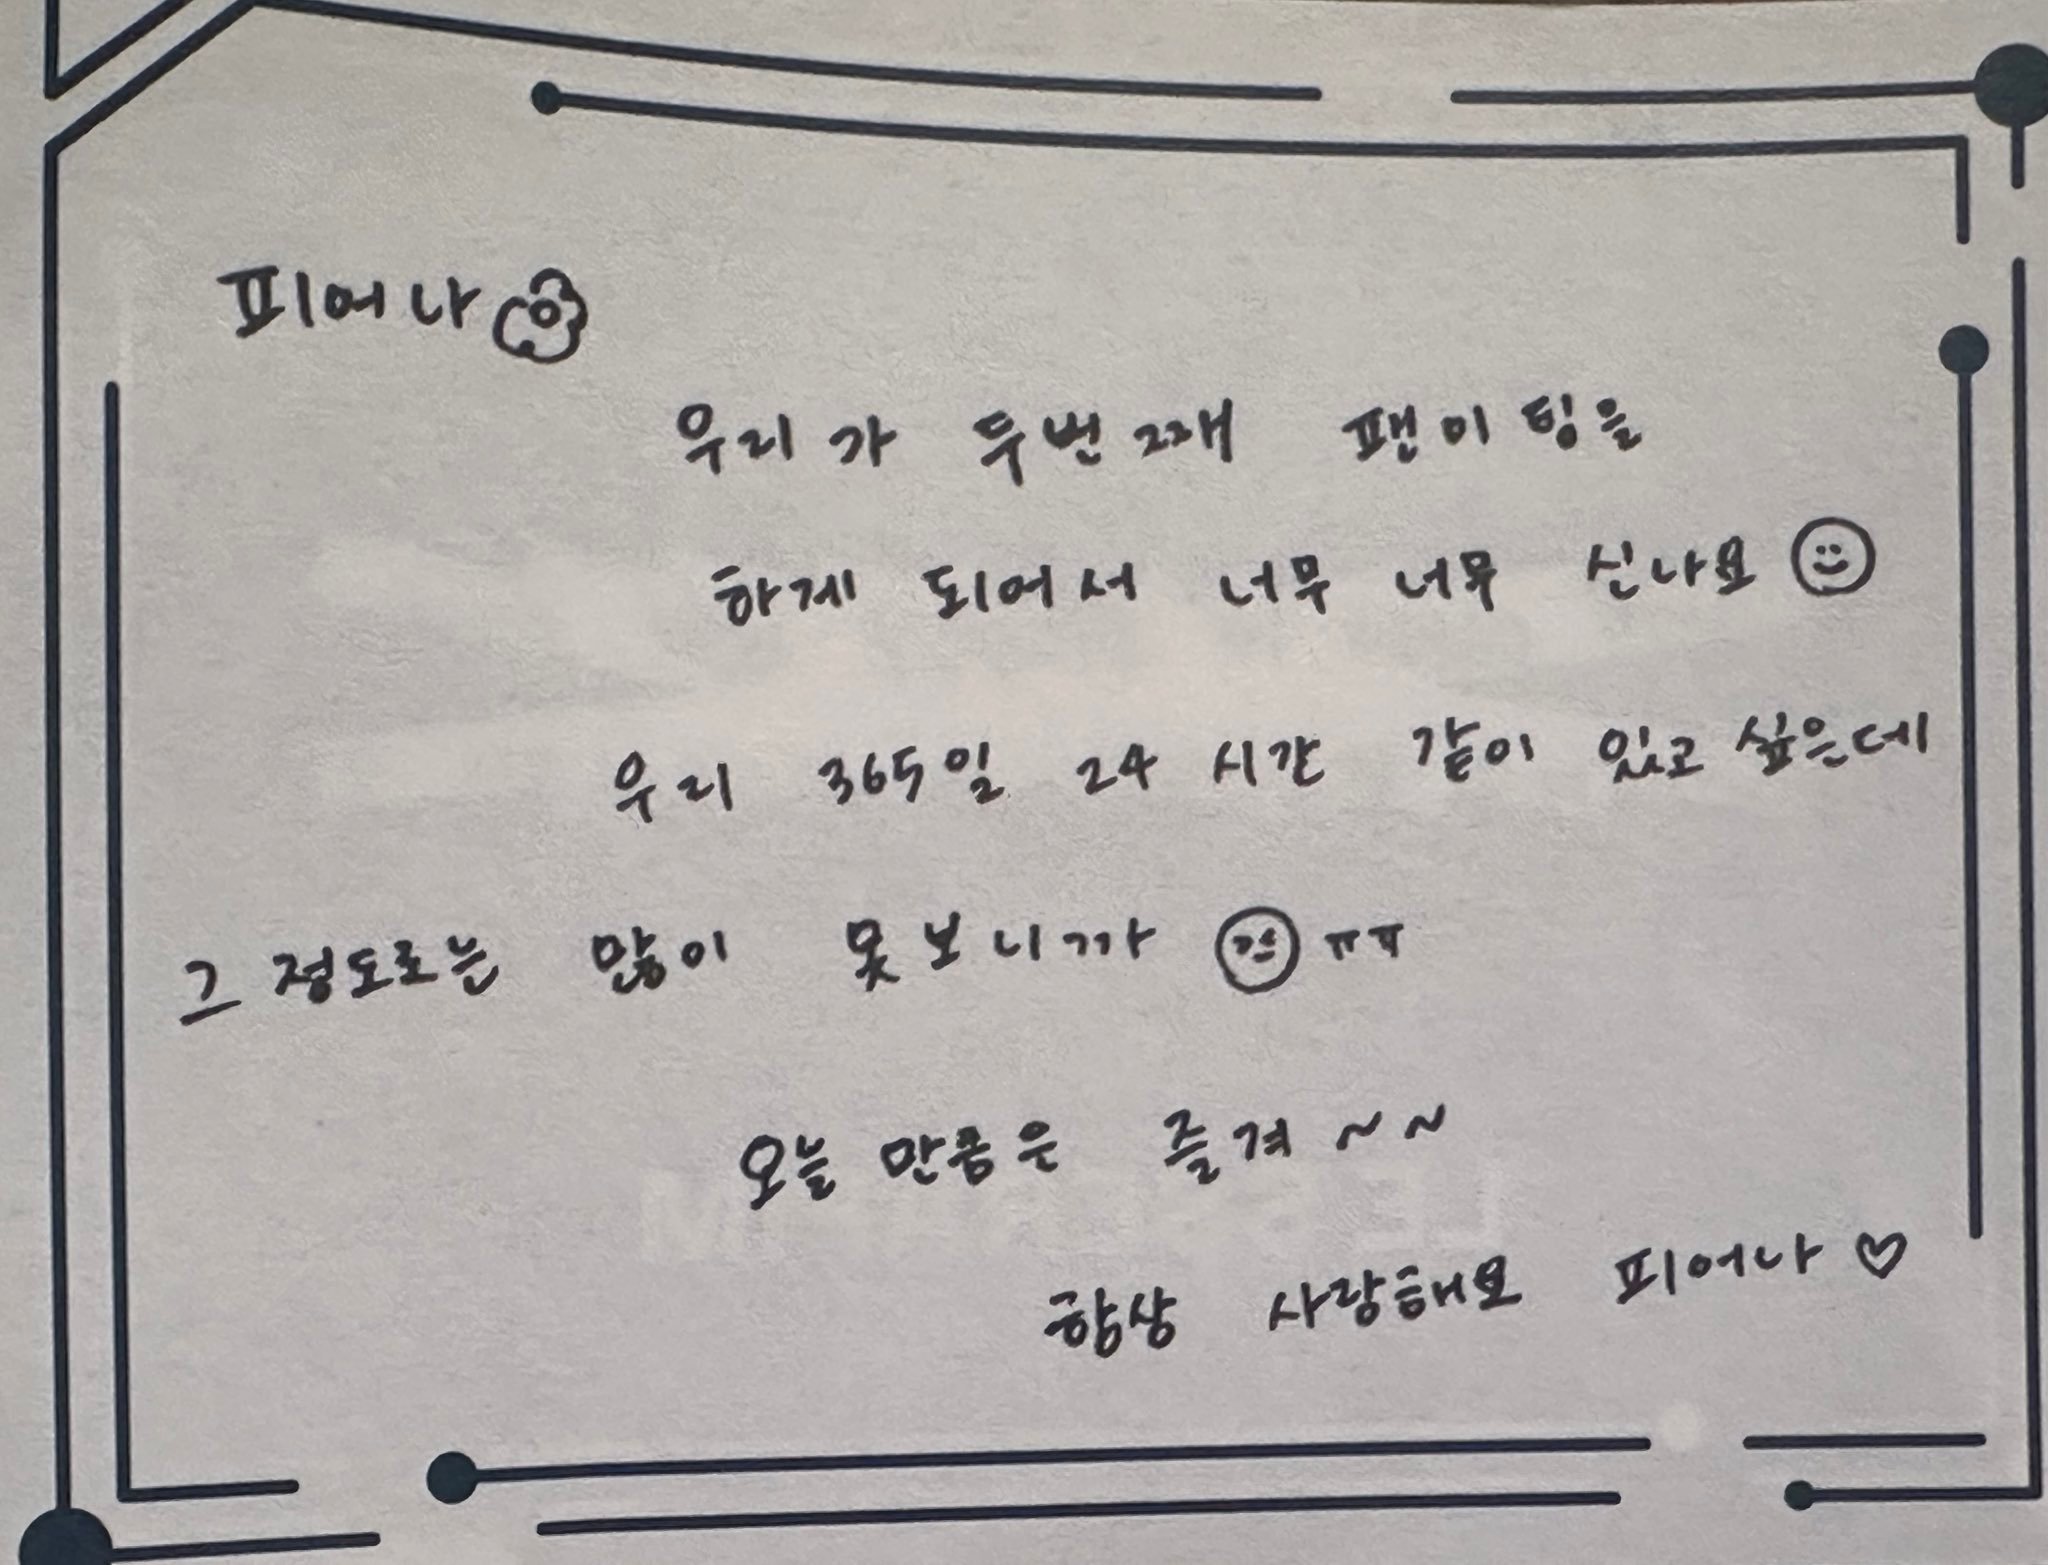 피어나
우리가 두번째 팬이팅을
하게 되어서 너무 너무 신나요
우리 365일 24시간 같이 있고 싶은데
그정도로는 많이 못보니까 ㅠㅠ
오늘 만큼은 즐겨~~
항상 사랑해요 피어나♡